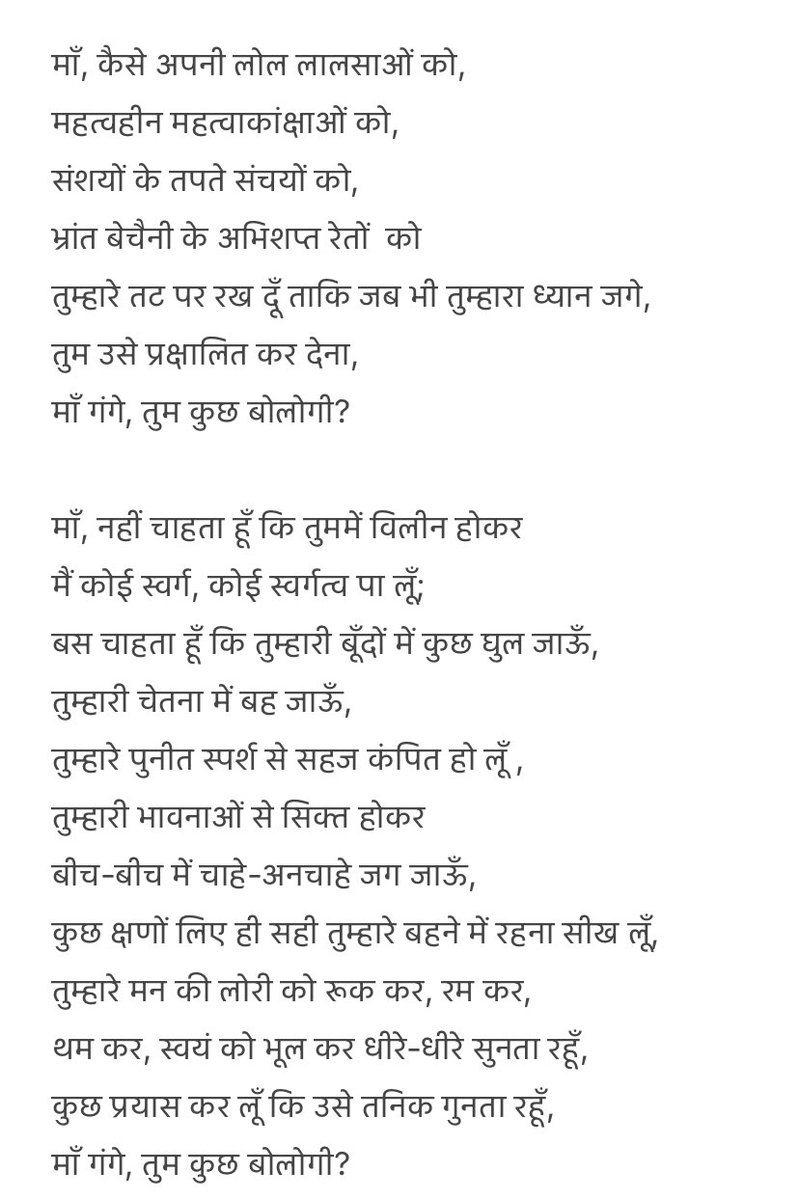 माँ, कैसे अपनी लोल लालसाओं को,
महत्वहीन महत्वाकांक्षाओं को,
संशयों के तपते संचयों को,
भ्रांत बेचैनी के अभिशप्त रेतों  को
तुम्हारे तट पर रख दूँ ताकि जब भी तुम्हारा ध्यान जगे,
तुम उसे प्रक्षालित कर देना,
माँ गंगे, तुम कुछ बोलोगी?

माँ, नहीं चाहता हूँ कि तुममें विलीन होकर
मैं कोई स्वर्ग, कोई स्वर्गत्व पा लूँ;
बस चाहता हूँ कि तुम्हारी बूँदों में कुछ घुल जाऊँ,
तुम्हारी चेतना में बह जाऊँ,
तुम्हारे पुनीत स्पर्श से सहज कंपित हो लूँ ,
तुम्हारी भावनाओं से सिक्त होकर
बीच-बीच में चाहे-अनचाहे जग जाऊँ,
कुछ क्षणों लिए ही सही तुम्हारे बहने में रहना सीख लूँ,
तुम्हारे मन की लोरी को रूक कर, रम कर,
थम कर, स्वयं को भूल कर धीरे-धीरे सुनता रहूँ,
कुछ प्रयास कर लूँ कि उसे तनिक गुनता रहूँ,
माँ गंगे, तुम कुछ बोलोगी?